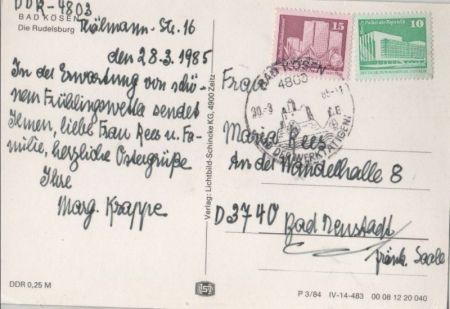 DDR-4803
BAD KÖSEN
Die Rudelsburg
Källmann-Str. 16
den 28.3.1985
In der Erwartung von schö-
nem Frühlingswetter sendet
Ihnen, liebe Frau Rees u. Fa-
milie, herzliche Ostergrüße
Ihre
Marg. Krappe
DDR 0,25 M
Verlag: Lichtbild-Schincke KG, 4900 Zeitz
15
10
BAD KÖSEN
4803
30.-3
Frau
Maria Rees
An der Wandelhalle 8
D 3740 Bad Neustadt
fränk. Saale
P 3/84 IV-14-483 00 08 12 20 040